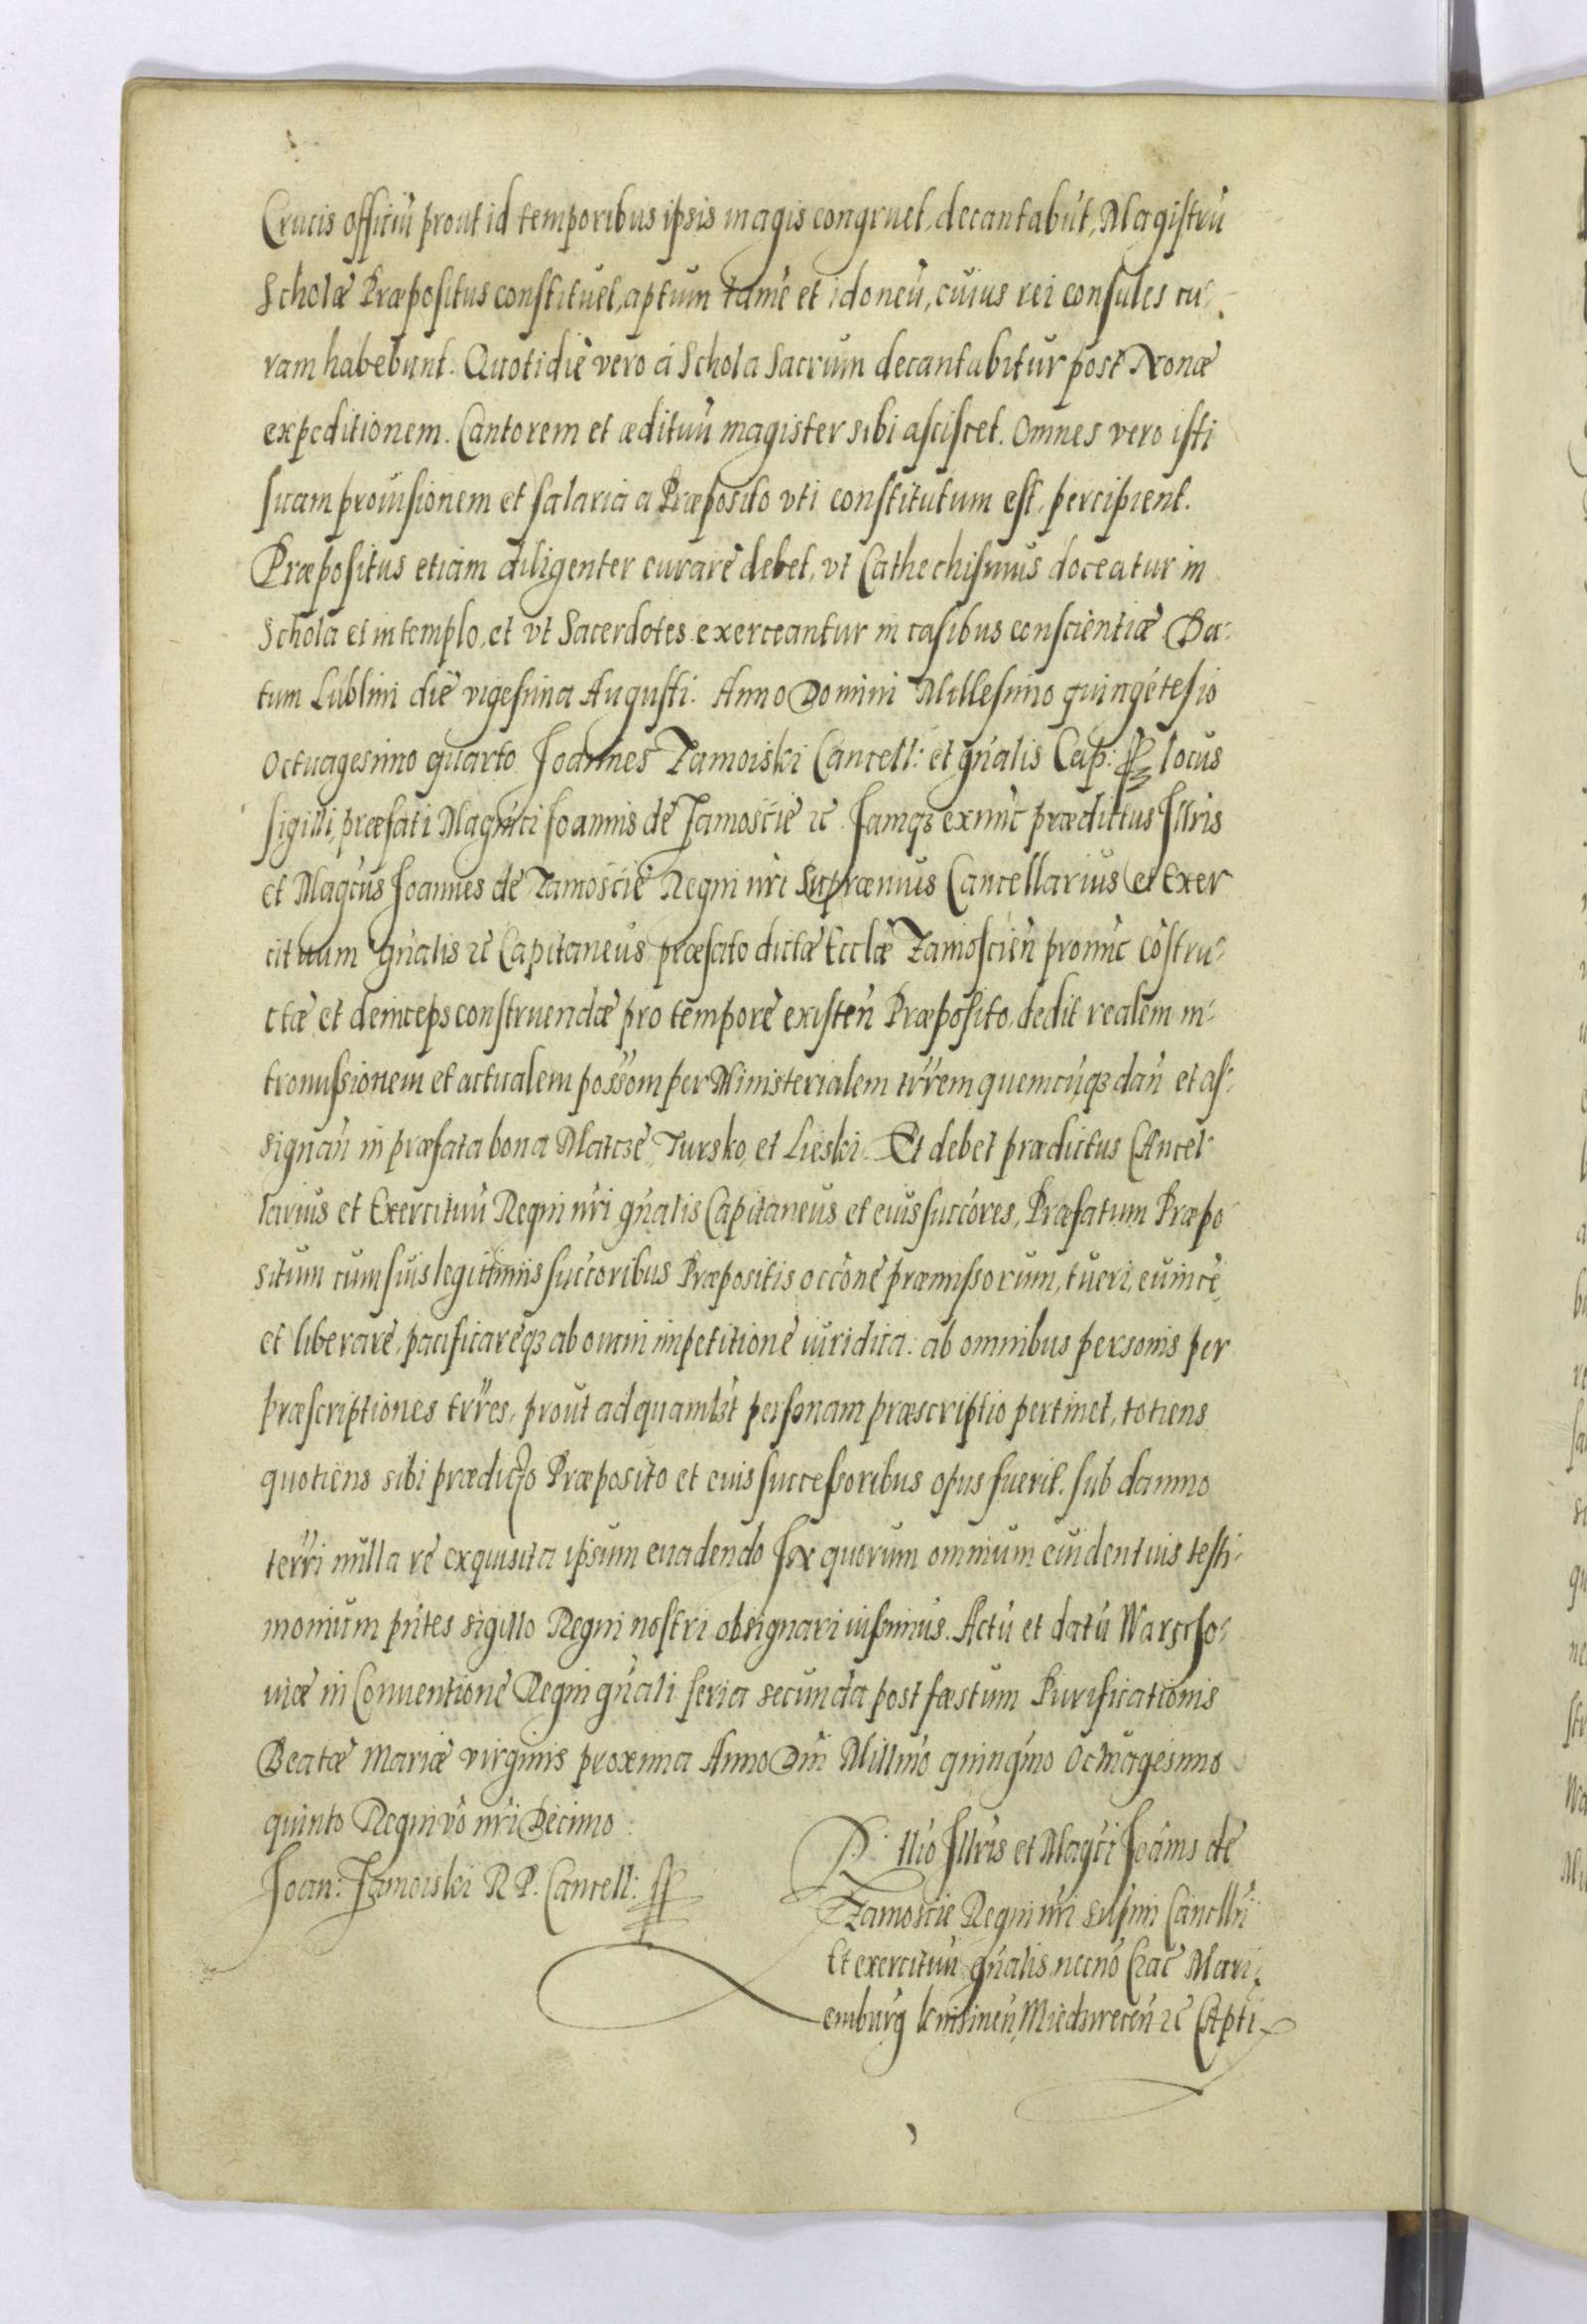 Crucis offitiũ prout id temporibus ipsis magis congruet, decantabũt, Magistrũ
Scholæ Præpositus constituet, aptum tamẽ et idoneũ, cuius rei consules cu-
ram habebunt. Quotidie vero á Schola Sacrum decantabitur post Nonæ
expeditionem. Cantorem et ædituũ magister sibi asciscet. Omnes vero isti
suam prouisionem et salaria a Præposito vti constitutum est, percipient.
Præpositus etiam diligenter curare debet, vt Cathechismus doceatur in
Schola et in templo, et vt Sacerdotes exerceantur in casibus conscientiæ Da-
tum Lublini die vigesima Augusti. Anno Domini Millesimo quingẽtesio
Octuagesimo quarto Joannes Zamoiski Cancell: et gñalis Cap: locus
sigilli, præfati Magnĩci Joannis de Zamoscie &c Jamqʒ exnũc prædictus Jllris
et Magcus Joannes de Zamoscie Regni nri Supræmus Cancellarius et Exer
cituum gñalis &c Capitaneus præfato dictæ Ecclæ Zamoscień pronũc cõstru-
ctæ et deinceps construendæ pro tempore existeñ Præposito, dedit realem in-
tromissionem et actualem possom per Ministerialem trrem quemcũqʒ dañ et as-
signañ in præfata bona Matcze Tursko, et Lieski. Et debet prædictus Cancel-
larius et Exercituũ Regni nri gñalis Capitaneus et eius succóres, Præfatum Præpo
situm cum suis legittimis succoribus Præpositis occõne præmissorum, tueri, euincẽ,
et liberare, pacificareqʒ ab omni impetitione iuridica: ab omnibus personis per
præscriptiones trres, prout ad quamlẽt personam præscriptio pertinet, totiens
quotiens sibi prædicto Præposito et euis successoribus opus fuerit. sub damno
terri nulla re exquisita ipsum euadendo Jn quorum omnium euidentius testi-
monium pñtes sigillo Regni nostri obsignari iussimus. Actũ et datũ Warscho-
uiæ in Conuentione Regni gñali feria secunda post fæstum Purificationis
Beatæ Mariæ virginis proxima Anno Dñi Millmo quingmo Octuagesimo
quinto Regni vo nri Decimo.
Joan: Zamoiski R P. Cancell:
Rllio Jllris et Magci Joanis de
Zamoscie Regni nri supmi Cancllrii
Et exercituũ gñalis, necnõ Crac Mari-
emburg knisineń Miedzirecen &c Capti